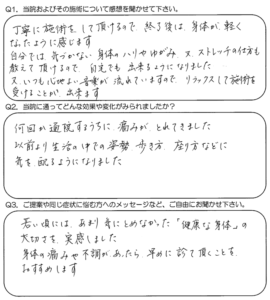 Q1. 当院およびその施術について感想を聞かせて下さい。
丁寧に施術をして頂けるので 終了後は、身体が軽く
なったように感じます
自分では気づかない身体のハリやゆがみ 又、ストレッチの仕方も
教えて頂けるので 自宅でも出来るようになりました
又、いつも心地よい音楽が流れていますので、リラックスして施術を
受けることが出来ます
Q2. 当院に通ってどんな効果や変化がみられましたか？
何回か通院するうちに 痛みがとれてきました
以前より生活の中での姿勢 歩き方 座り方などに
気を配るようになりました
Q3. ご提案や同じ症状に悩む方へのメッセージなど、ご自由にお聞かせ下さい。
若い頃には、あまり気にとめなかった「健康な身体」の
大切さを実感しました
身体の痛みや不調があったら 早めに診て頂くことを
おすすめします